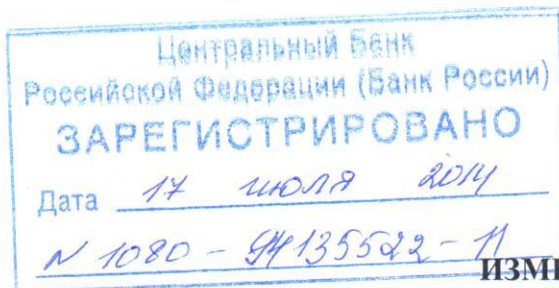 Центральный Банк
Российской Федерации (Банк России)
ЗАРЕГИСТРИРОВАНО
Дата 17 июля 2014
N 1080-94135522-11
ИЗМ